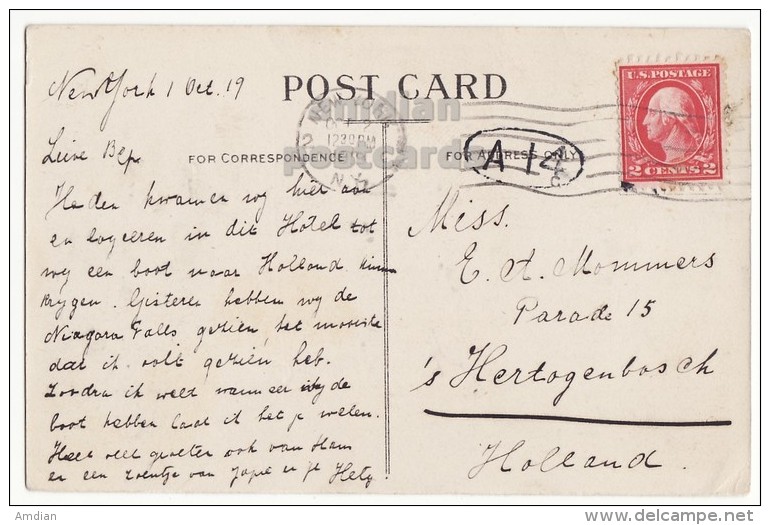 New York 1 Oct. 19
POST CARD
U.S. POSTAGE
2 CENTS 2
NEW YORK
OCT 2
12 30 PM
N.Y.
Lieve Bep.
FOR CORRESPONDENCE
FOR ADDRESS ONLY
A 14
Heden kwamen wy hier aan
en logeeren in dit Hotel tot
wy een boot naar Holland kunnen
krygen. Gisteren hebben wy de
Niagara Falls gezien, het mooiste
dat ik ooit gezien heb.
Zoodra ik weet wanneer wy de
boot hebben laat ik het je weten.
Heel veel groeten ook van Ham
en een zoentje van Japie en je Hety
Miss.
E. A. Mommers
Parade 15
's Hertogenbosch
Holland.
amdian
postcards
Amdian
www.delcampe.net